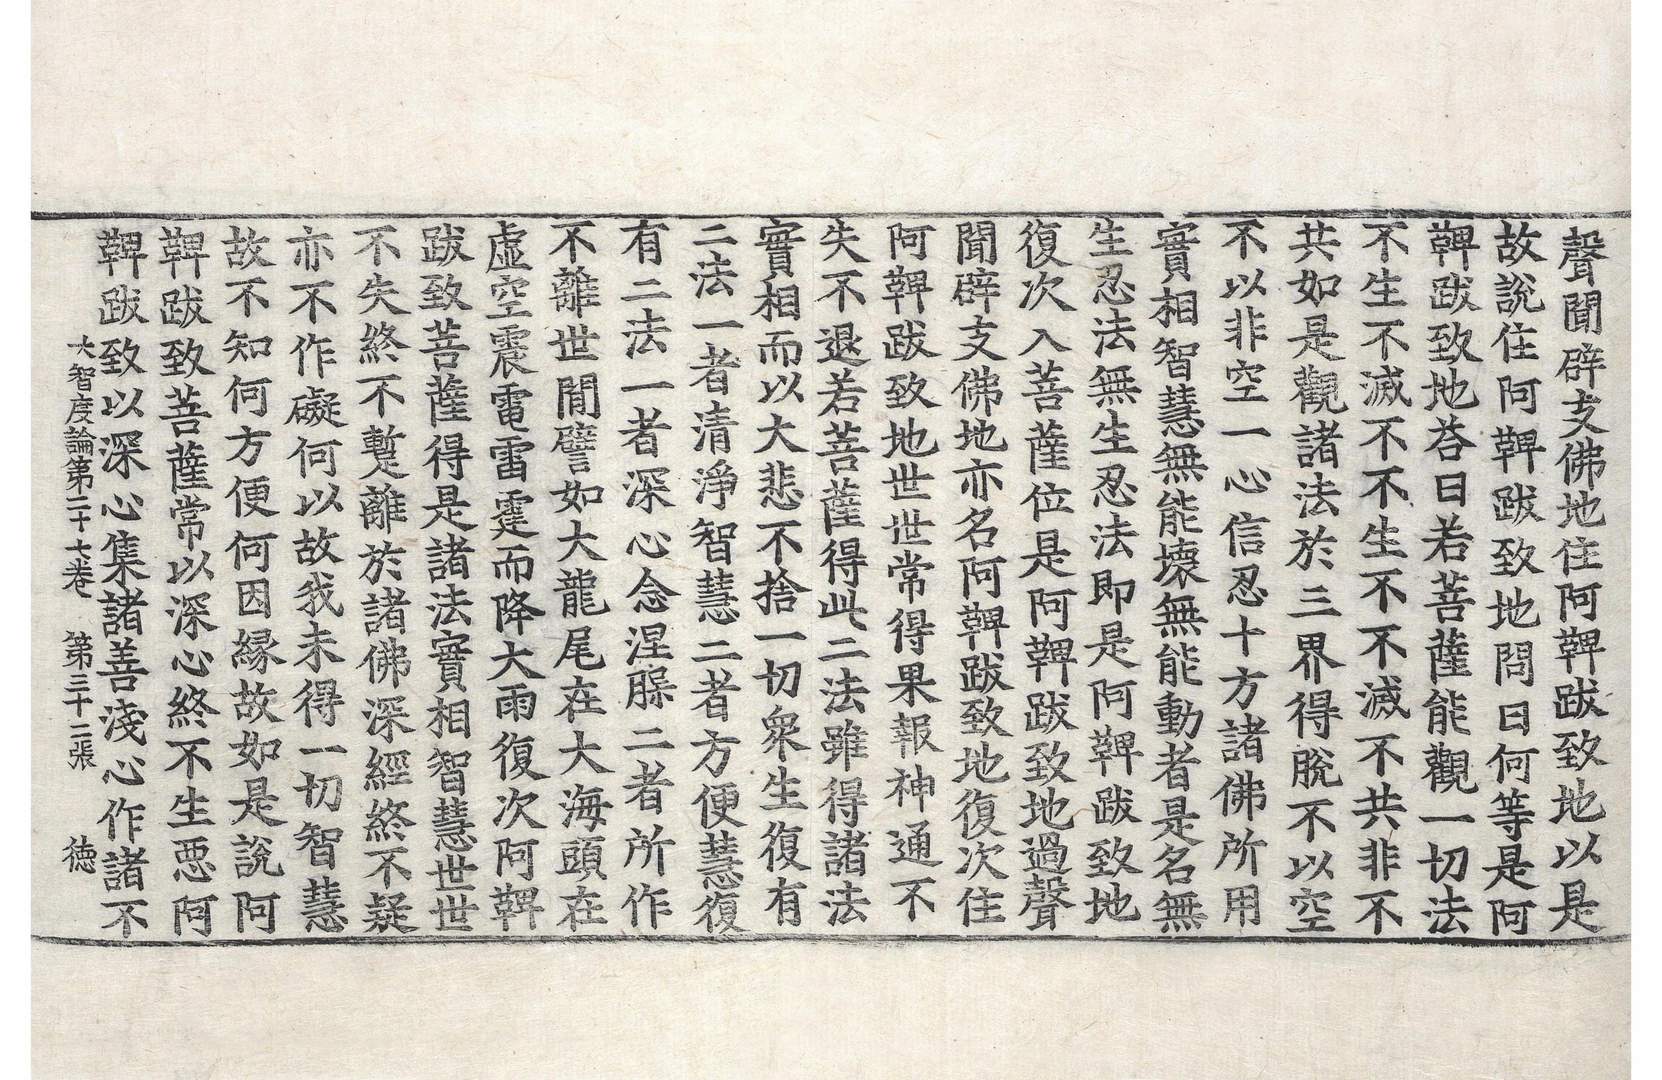 聲聞辟支佛地住阿鞞跋致地以是
故說住阿鞞跋致地問曰何等是阿
鞞跋致地荅曰若菩薩能觀一切法
不生不滅不不生不不滅不共非不
共如是觀諸法於三界得脫不以空
不以非空一心信忍十方諸佛所用
實相智慧無能壞無能動者是名無
生忍法無生忍法即是阿鞞跋致地
復次入菩薩位是阿鞞跋致地過聲
聞辟支佛地亦名阿鞞跋致地復次住
阿鞞跋致地世世常得果報神通不
失不退若菩薩得此二法雖得諸法
實相而以大悲不捨一切衆生復有
二法一者清淨智慧二者方便慧復
有二法一者深心念涅槃二者所作
不離世閒譬如大龍尾在大海頭在
虛空震電雷霆而降大雨復次阿鞞
跋致菩薩得是諸法實相智慧世世
不失終不蹔離於諸佛深經終不疑
亦不作礙何以故我未得一切智慧
故不知何方便何因緣故如是說阿
鞞跋致菩薩常以深心終不生惡阿
鞞跋致以深心集諸善淺心作諸不
大智度論第二十七卷 第三十二張 德